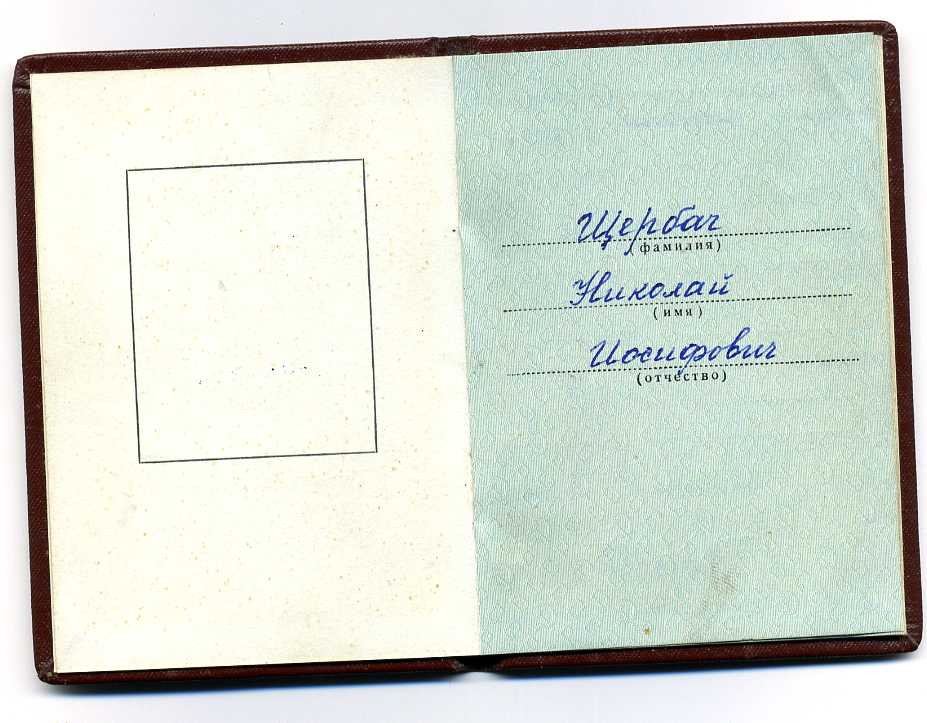 Щербач
(фамилия)
Николай
(имя)
Иосифович
(отчество)